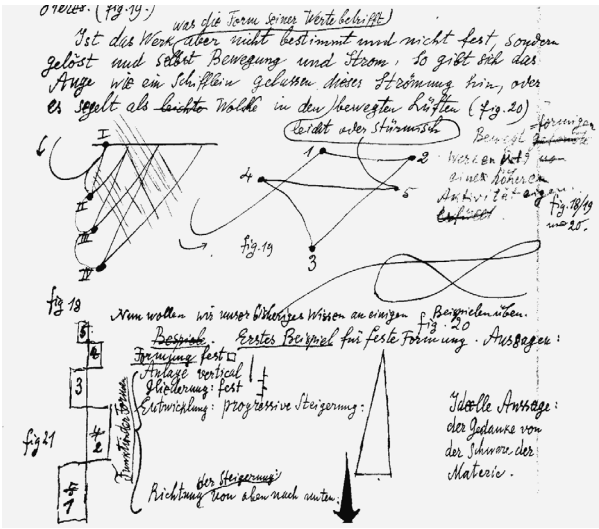 (fig. 19.)
was die Form seiner Werte betrifft)
Ist das Werk, aber nicht bestimmt und nicht fest, sondern
gelöst und selbst Bewegung und Strom, so gibt sich das
Auge wie ein Schifflein gelassen dieser Strömung hin, oder
es segelt als leichte Wolke in den bewegten Lüften (fig. 20)
leidet oder stürmisch
I
II
III
IV
1
2
3
4
5
fig. 19
Bewegt -förmigen
Werken ist
einer höheren
Aktivität eigen.
erfüllt.
fig. 18/19
20.
fig 18
Nun wollen wir unser bisheriges Wissen an einigen Beispielen üben.
fig. 20
Beispiel. Erstes Beispiel für feste Formung. Aussagen:
Formung fest
Anlage vertical
Gliederung: fest
Entwicklung: progressive Steigerung:
der Steigerung:
Richtung von oben nach unten:
5
4
3
2
1
fig 21
Ideelle Aussage:
der Gedanke von
der Schwere der
Materie.